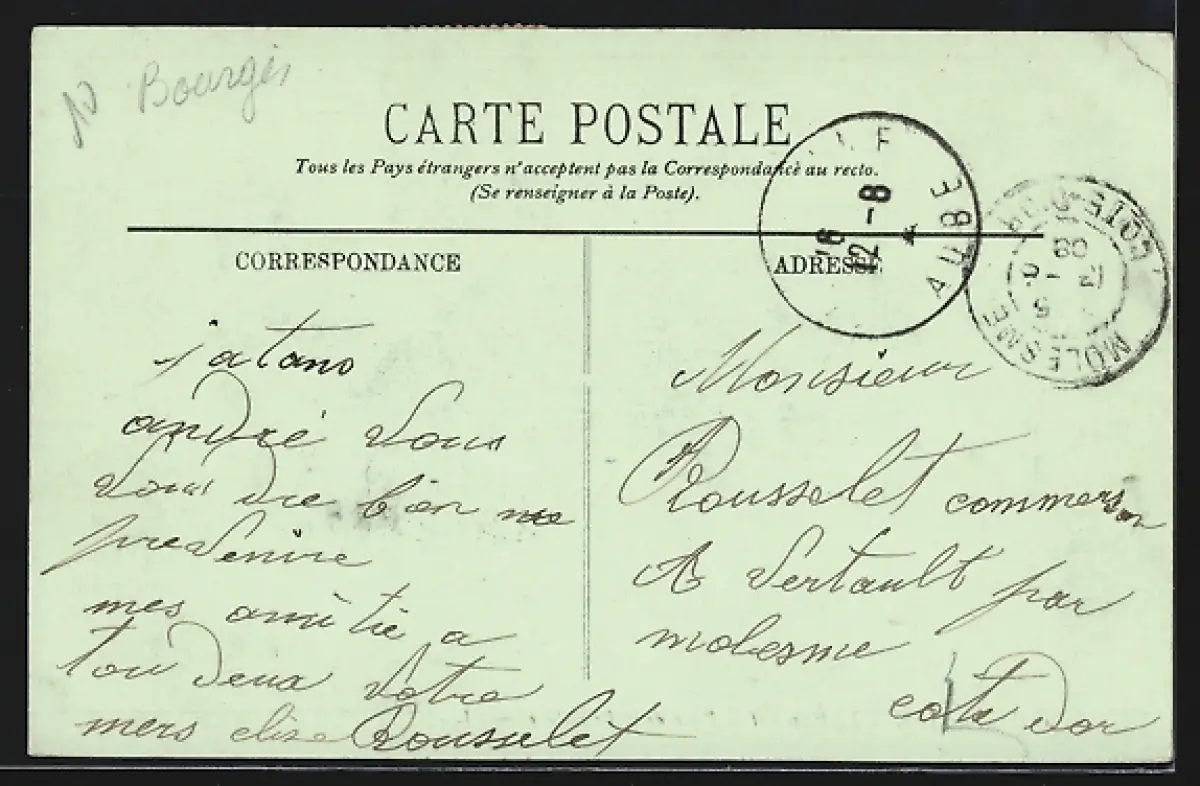 10 Bourges
CARTE POSTALE
Tous les Pays étrangers n'acceptent pas la Correspondance au recto.
(Se renseigner à la Poste).
CORRESPONDANCE
jatans
andré vous
vous dre bien me
prevenire
mes amitié a
tou deux votre
mers elise Rousselet
ADRESSE
AUBE
12 -8
COTE-D'OR
MOLESME
08
Monsieur
Rousselet commersan
A Vertault par
molesme
cote dor